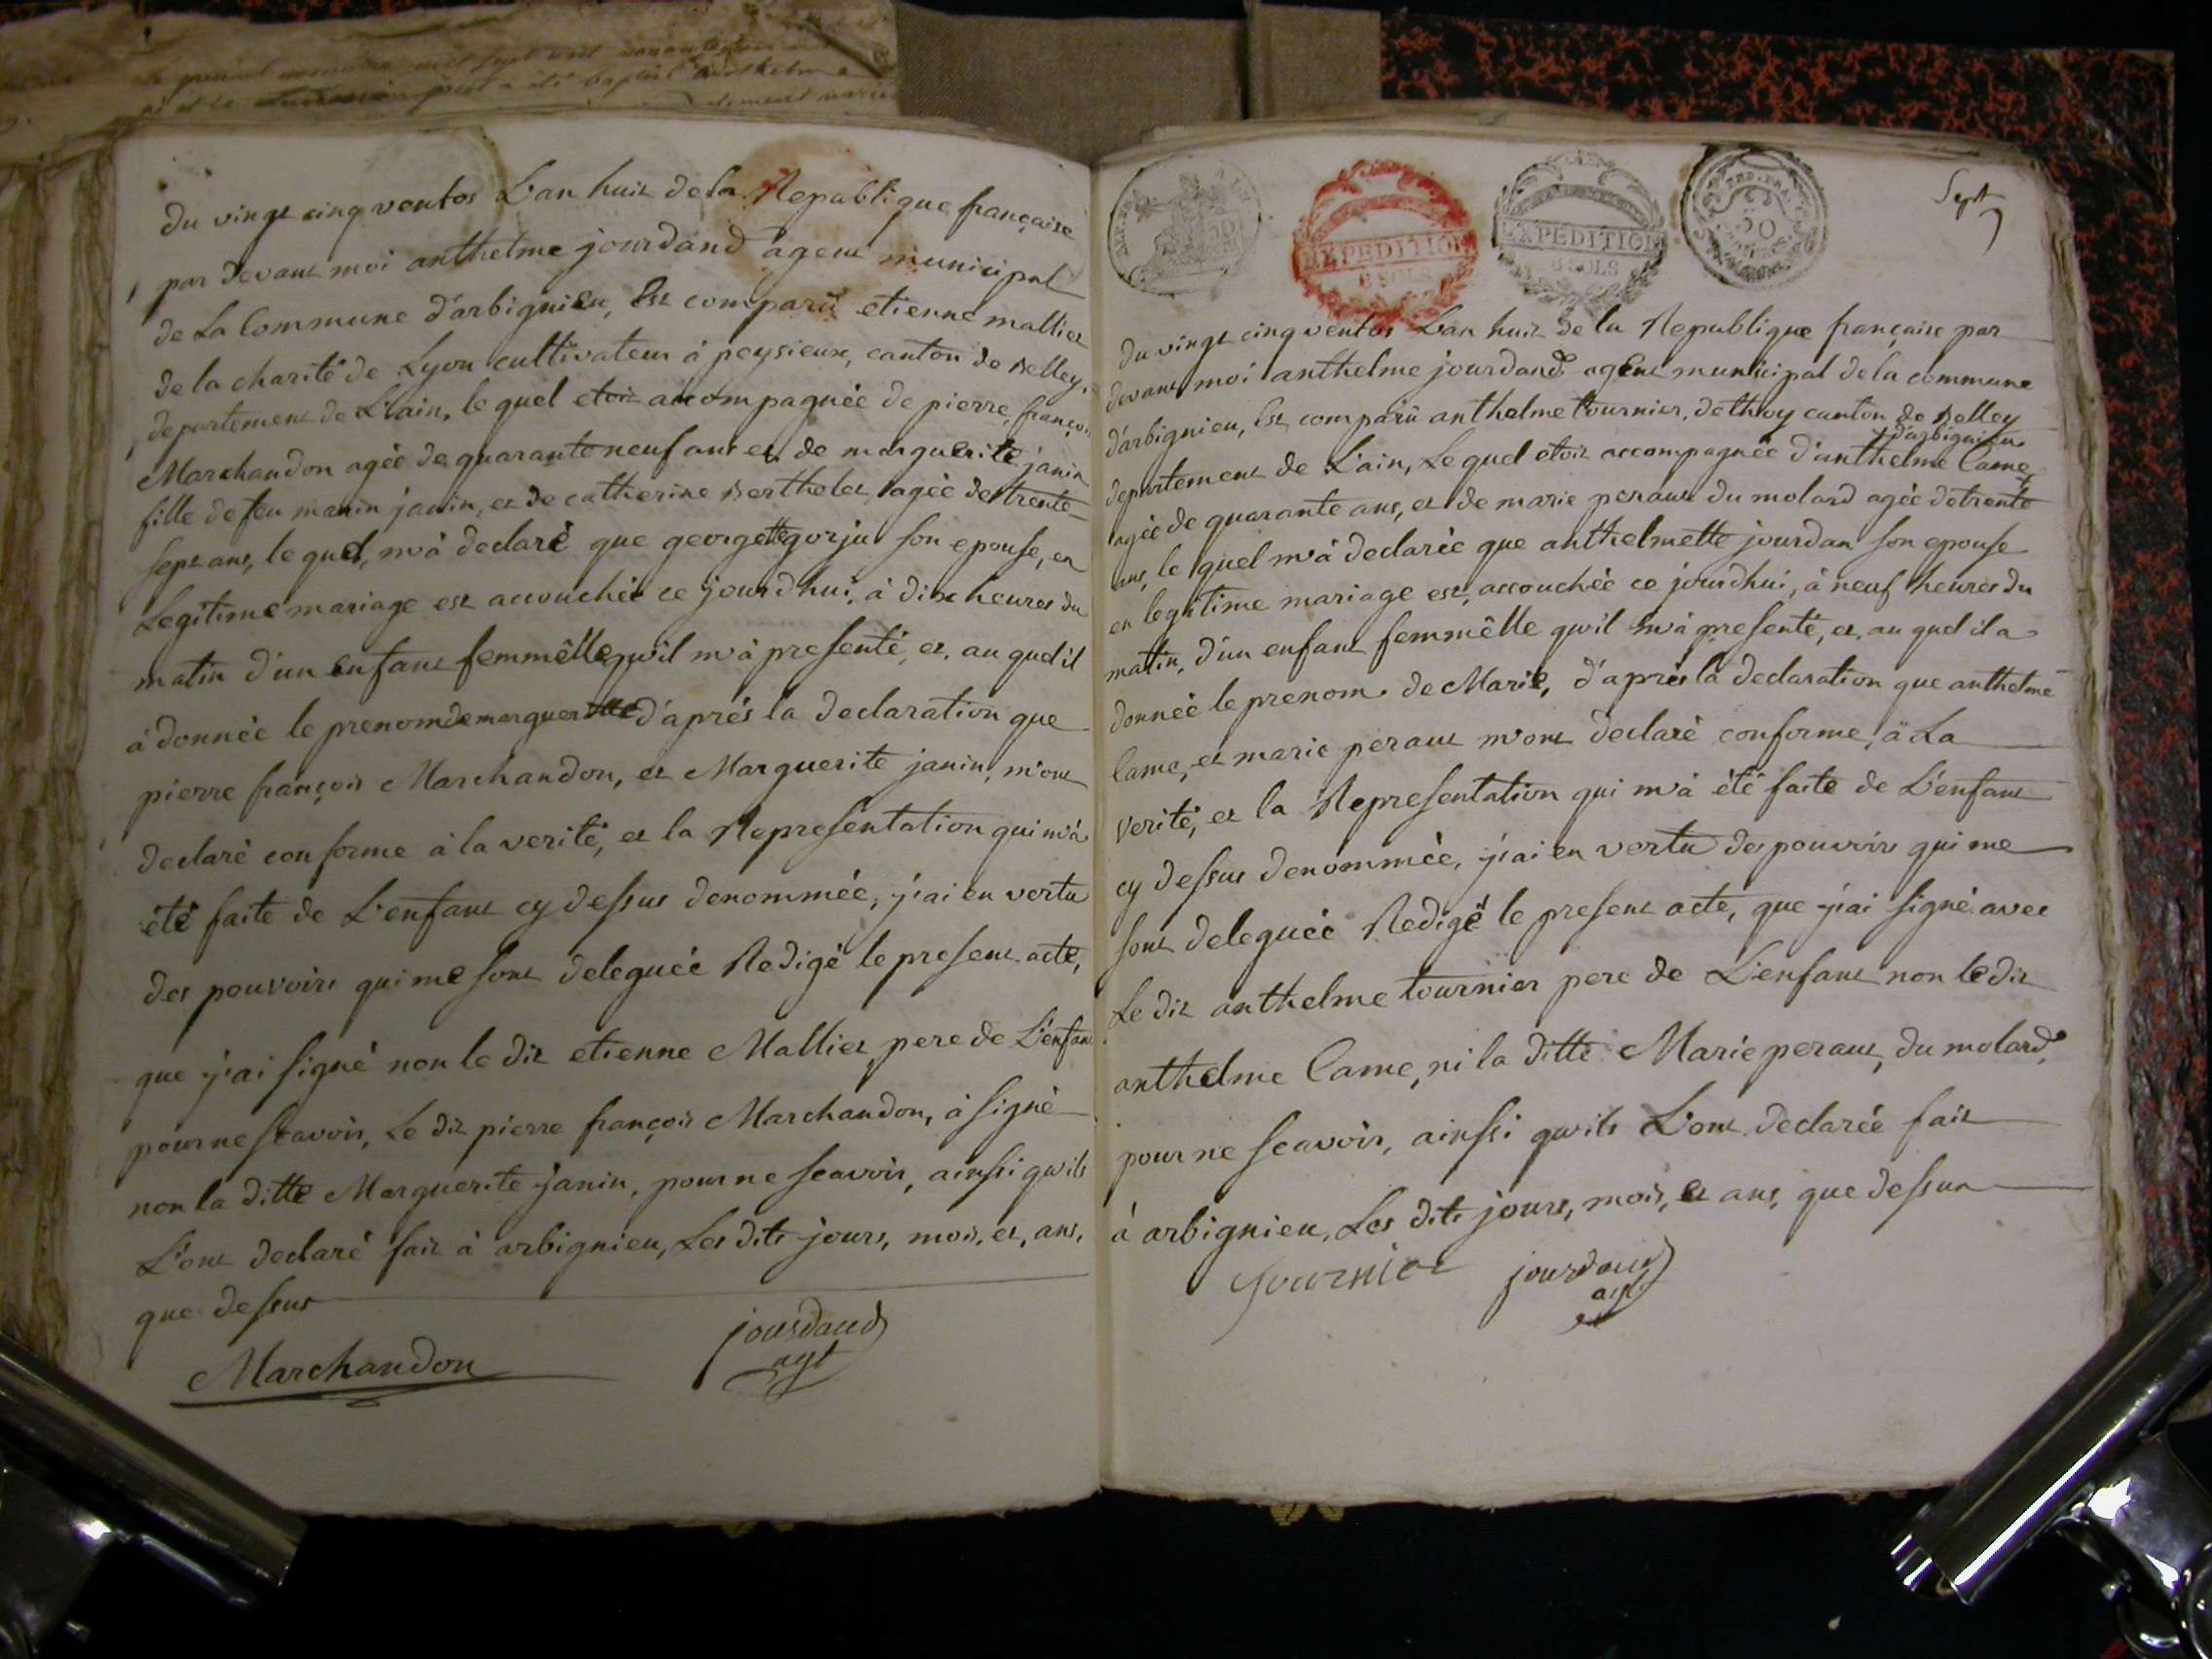 du vingt cinq ventos L'an huit de la Republique française
par devant moi anthelme jourdand agent municipal
de La Commune d'arbignieu, Est comparü etienne mallier
de la charité de Lyon cultivateur à peysieux, canton de Belley,
departement de L'ain, le quel etoit accompagnée de pierre, françois
Marchandon agée de quarante neuf ans et de marguerite janin
fille de feu manin janin, et de catherine Berthelet, agée de trente
sept ans, le quel, m'à declaré que georgette gorju son epouse, en
Legitime mariage est accouchée ce jourd'hui, à dix heures du
matin d'un enfant femmêlle qu'il m'à presenté, et, au quel il
à donnée le prenom de marguerite d'aprés la declaration que
pierre françois Marchandon, et Marguerite janin, m'ont
declaré conforme à la verité, et la Representation qui m'à
été faite de L'enfant cy dessus denommée, j'ai en vertu
des pouvoirs qui me sont deleguée Redigé le present acte,
que j'ai signé non le dit etienne Mallier pere de L'enfant
pour ne scavoir, Le dit pierre françois Marchandon, à signé
non la ditte Marguerite janin, pour ne scavoir, ainssi qu'ils
L'ont declaré fait à arbignieu, Les dits jours, mois, et, ans,
que dessus
Marchandon jourdand
agt
Sept
7
EXPEDITION
6 SOLS
EXPEDITION
6 SOLS
50
du vingt cinq ventos L'an huit de la Republique française par
devant moi anthelme jourdand agent municipal de la commune
d'arbignieu, Est comparü anthelme tournier, de thoy canton de Belley
d'arbignieu
departement de L'ain, Le quel etoit accompagnée d'anthelme Came
agée de quarante ans, et de marie peraut du molard agée de trente
ans, le quel m'à declarée que anthelmette jourdan son epouse
en legitime mariage est, accouchée ce jourdhui, à neuf heures du
matin, d'un enfant femmêlle qu'il m'à presenté, et, au quel il a
donnée le prenom de Marie, d'aprés la declaration que anthelme
Came, et marie peraut m'ont declaré conforme, à La
verité, et la Representation qui m'à été faite de L'enfant
cy dessus denommée, j'ai en vertu des pouvoirs qui me
sont deleguée Redigé le present acte, que j'ai signé avec
Le dit anthelme tournier pere de L'enfant non le dit
anthelme Came, ni la ditte Marie peraut, du molard,
pour ne scavoir, ainssi qu'ils L'ont declarée fait
à arbignieu, Les dits jours, mois, et ans, que dessus
tournier jourdand
agt